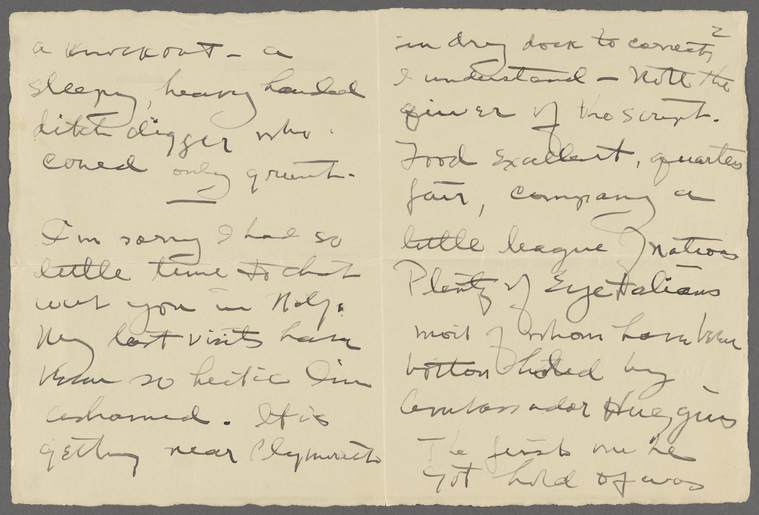 a knockout – a
sleepy, heavy handed
ditch digger who
coued only grunt.
I'm sorry I had so
little time to chat
with you in N.Y.
My last visits have
been so hectic I'm
ashamed. It is
getting near Plymouth
2
in dry dock to correct,
I understand – Note the
quiver of the script.
Food excellent, quarters
fair, company a
little league of nations
Plenty of Eyetalians
most of whom have been
button holed by
Ambassador Huggins
The first one he
got hold of was